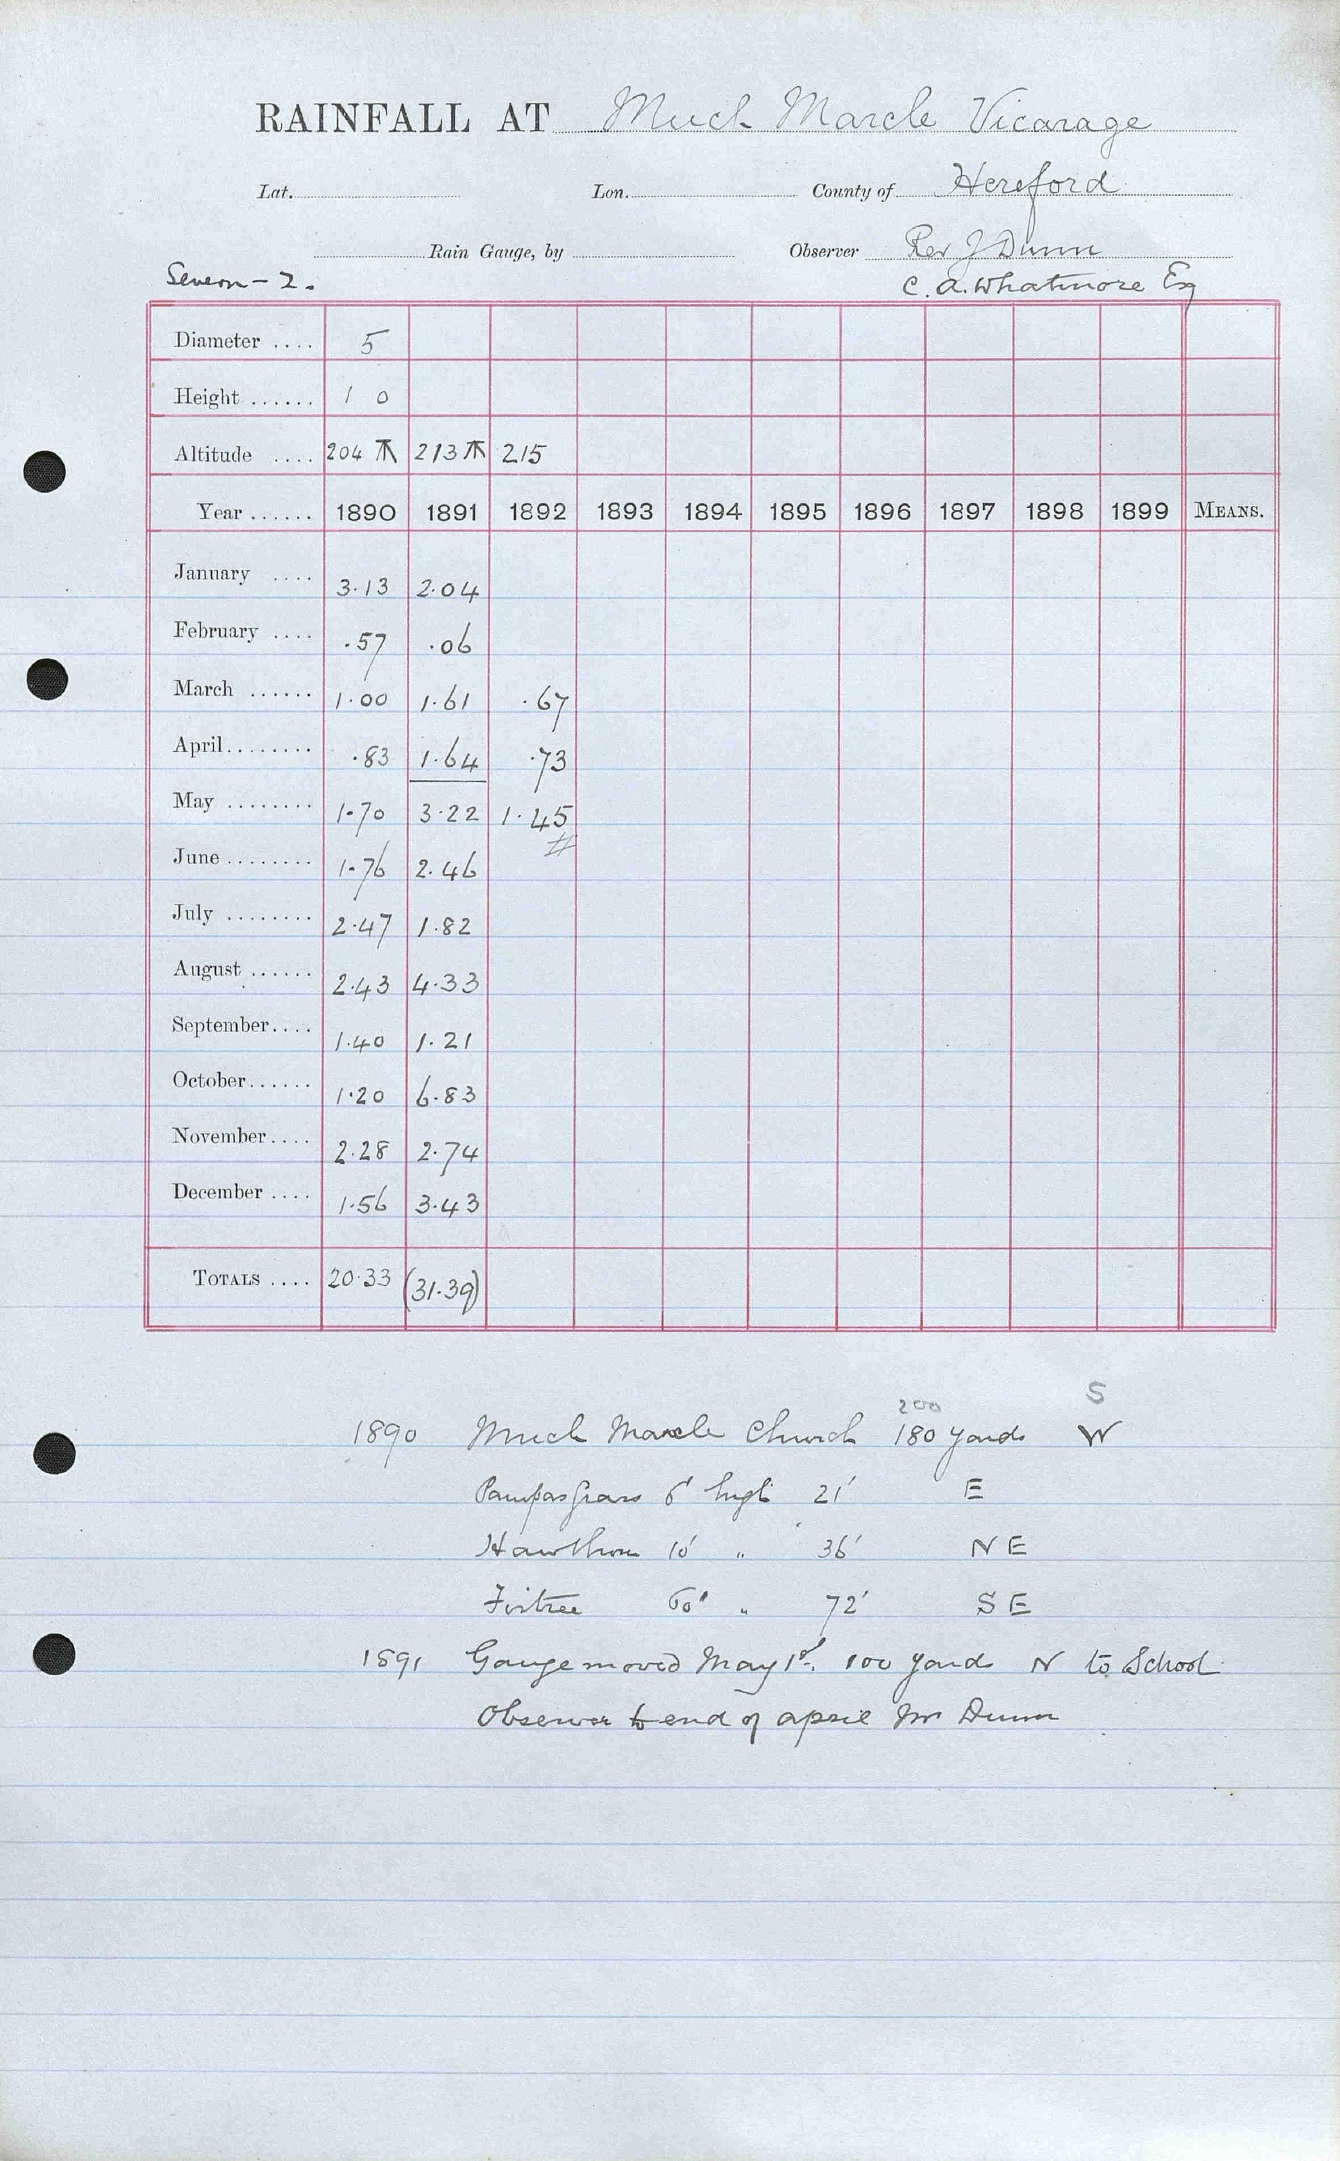 RAINFALL AT Much Marcle Vicarage
Lat. Lon. County of Hereford
Rain Gauge, by Observer Rev J Dunn
Severn – 2. C. A. Whatmore Esq
Diameter .... 5
Height ...... 1 0
Altitude .... 204 ⊼ 213 ⊼ 215
Year ...... 1890 1891 1892 1893 1894 1895 1896 1897 1898 1899 MEANS.
January .... 3.13 2.04
February .... .57 .06
March ...... 1.00 1.61 .67
April........ .83 1.64 .73
May ........ 1.70 3.22 1.45
#
June ........ 1.76 2.46
July ........ 2.47 1.82
August ...... 2.43 4.33
September.... 1.40 1.21
October...... 1.20 6.83
November.... 2.28 2.74
December .... 1.56 3.43
TOTALS .... 20.33 (31.39)
200 S
1890 Much Marcle Church 180 yards W
Pampas Grass 6' high 21' E
Hawthorn 10' " 36' NE
Firtree 60' " 72' SE
1891 Gauge moved May 1st. 100 yards N to School
Observer to end of april Mr Dunn